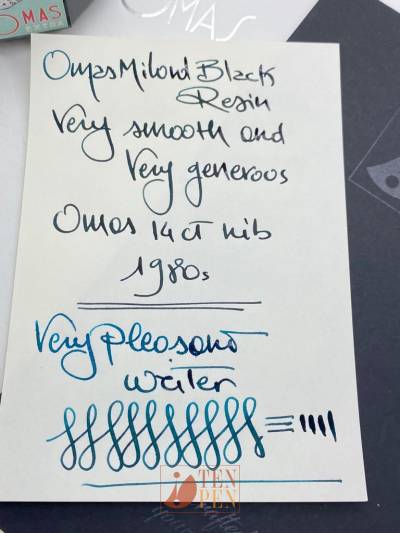 OMAS
EXTRA
OMAS
Omas Milord Black
Resin
Very smooth and
Very generous
Omas 14 ct nib
1980s
Very pleasant
writer
TEN
PEN